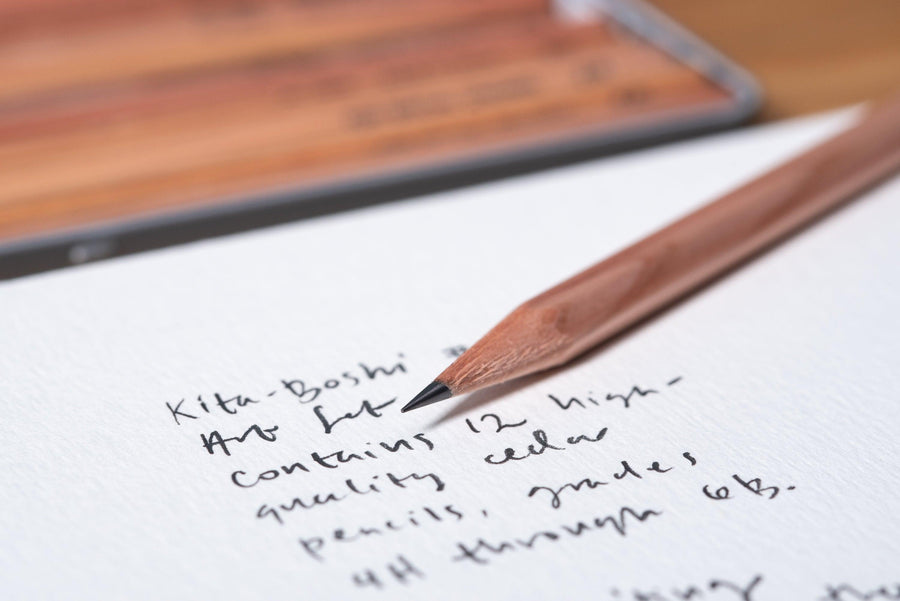 Kita-Boshi
Art Set
contains 12 high-
quality cedar
pencils, grades
4H through 6B.